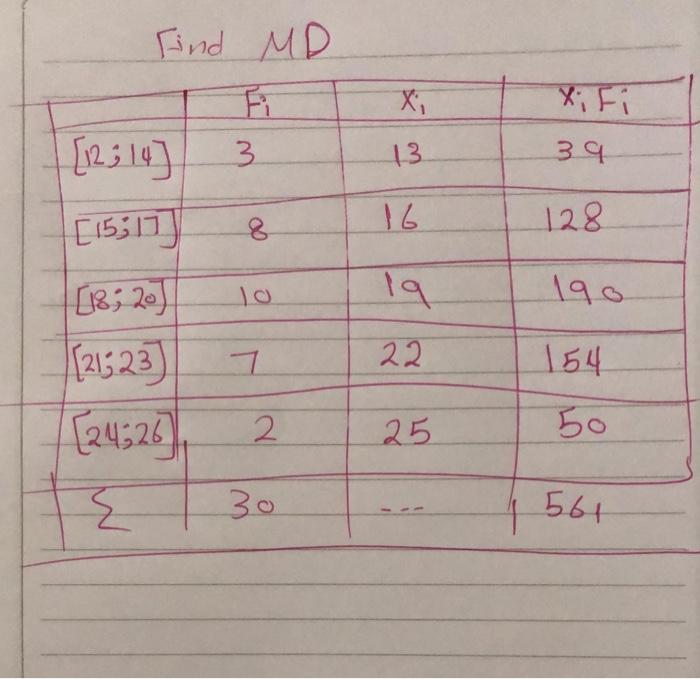 Find MD
Fi Xi Xi Fi
[12;14] 3 13 39
[15;17] 8 16 128
[18;20] 10 19 190
[21;23] 7 22 154
[24;26] 2 25 50
Σ 30 --- 561